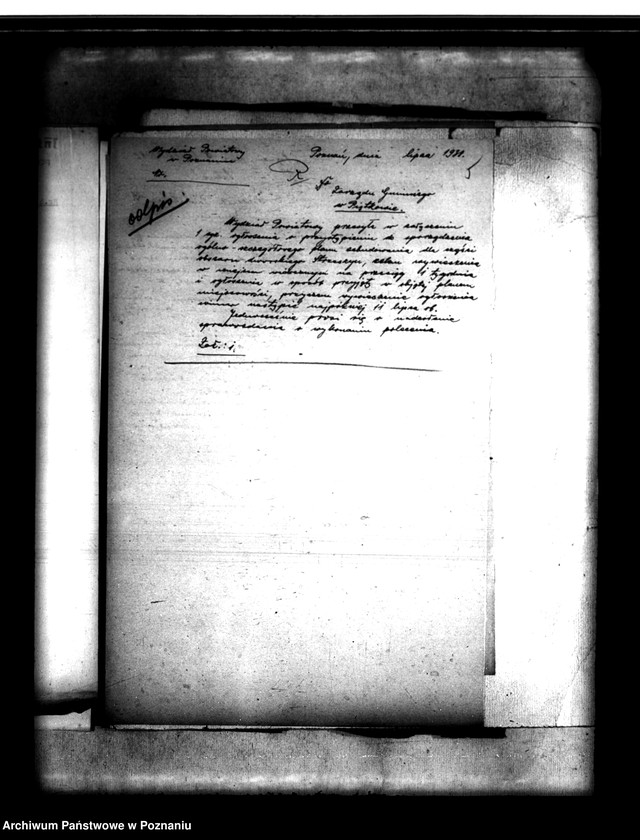 Wydział Powiatowy
w Poznaniu
Poznań, dnia lipca 1931.
odpis
Do
Zarządu Gminnego
w Piątkowie.
Wydział Powiatowy przesyła w załączeniu
1 egz. ogłoszenia o przystąpieniu do sporządzenia
ogólno szczegółowego planu zabudowania dla części
obszaru dworskiego celem wywieszenia
w miejscu widocznym na przeciąg 4 tygodni
i ogłoszenia w sposób przyjęty w objętej planem
miejscowości, przyczem wywieszenie ogłoszenia
winno nastąpić najpóźniej 11 lipca rb.
Jednocześnie prosi się o nadesłanie
sprawozdania o wykonaniu polecenia.
Zał.: 1.
Archiwum Państwowe w Poznaniu